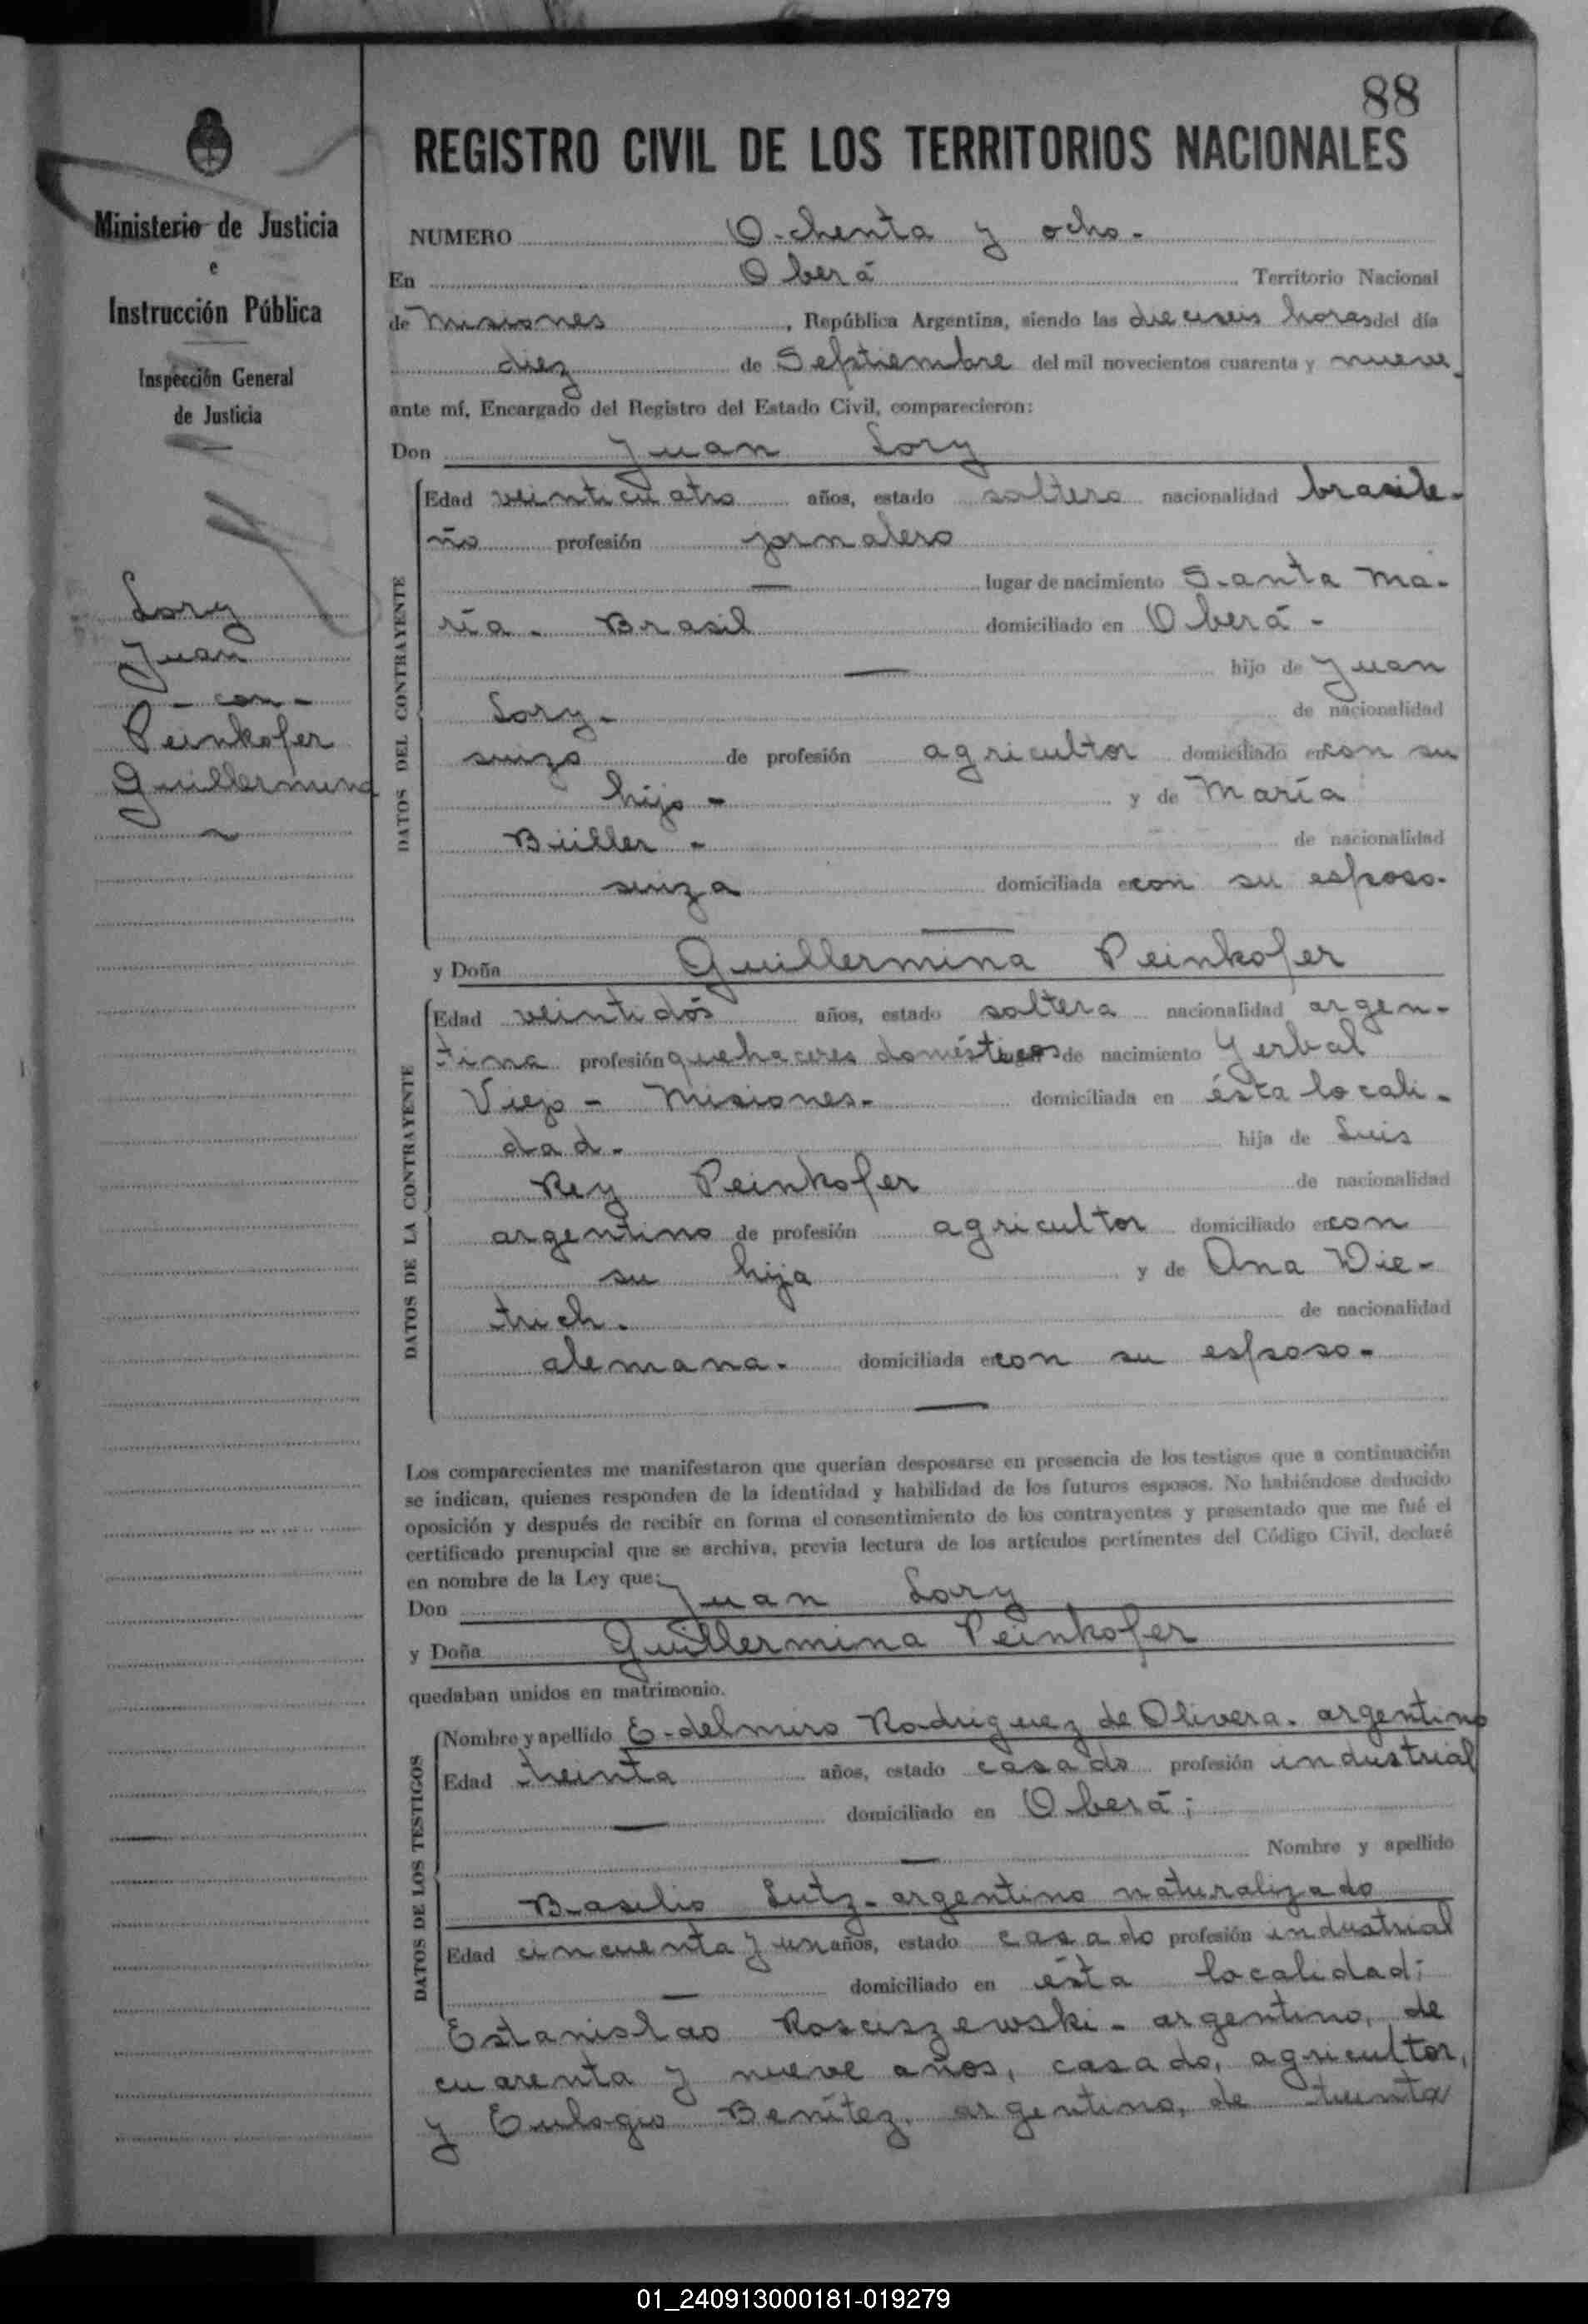 88
REGISTRO CIVIL DE LOS TERRITORIOS NACIONALES
Ministerio de Justicia
e
Instrucción Pública
Inspección General
de Justicia
Lory
Juan
- con -
Peinkofer
Guillermina
NUMERO Ochenta y ocho.
En Oberá Territorio Nacional
de Misiones, República Argentina, siendo las dieciseis horas del día
diez de Septiembre del mil novecientos cuarenta y nueve
ante mí, Encargado del Registro del Estado Civil, comparecieron:
Don Juan Lory
DATOS DEL CONTRAYENTE
Edad veinticuatro años, estado soltero nacionalidad brasile-
ño profesión jornalero
lugar de nacimiento Santa Ma-
ría - Brasil domiciliado en Oberá -
hijo de Juan
Lory - de nacionalidad
suizo de profesión agricultor domiciliado en con su
hijo - y de María
Büller - de nacionalidad
suiza domiciliada en con su esposo.
y Doña Guillermina Peinkofer
DATOS DE LA CONTRAYENTE
Edad veintidós años, estado soltera nacionalidad argen-
tina profesión quehaceres domésticos de nacimiento Yerbal
Viejo - Misiones. domiciliada en ésta locali-
dad. hija de Luis
Rey Peinkofer de nacionalidad
argentino de profesión agricultor domiciliado en con
su hija y de Ana Die-
trich. de nacionalidad
alemana. domiciliada en con su esposo.
Los comparecientes me manifestaron que querían desposarse en presencia de los testigos que a continuación
se indican, quienes responden de la identidad y habilidad de los futuros esposos. No habiéndose deducido
oposición y después de recibir en forma el consentimiento de los contrayentes y presentado que me fué el
certificado prenupcial que se archiva, previa lectura de los artículos pertinentes del Código Civil, declaré
en nombre de la Ley que:
Don Juan Lory
y Doña Guillermina Peinkofer
quedaban unidos en matrimonio.
DATOS DE LOS TESTIGOS
Nombre y apellido Edelmiro Rodriguez de Olivera. argentino
Edad treinta años, estado casado profesión industrial
domiciliado en Oberá;
Nombre y apellido
Basilio Lutz - argentino naturalizado
Edad cincuenta y un años, estado casado profesión industrial
domiciliado en ésta localidad;
Estanislao Rosciszewski - argentino, de
cuarenta y nueve años, casado, agricultor,
y Eulogio Benítez, argentino, de treinta
01_240913000181-019279